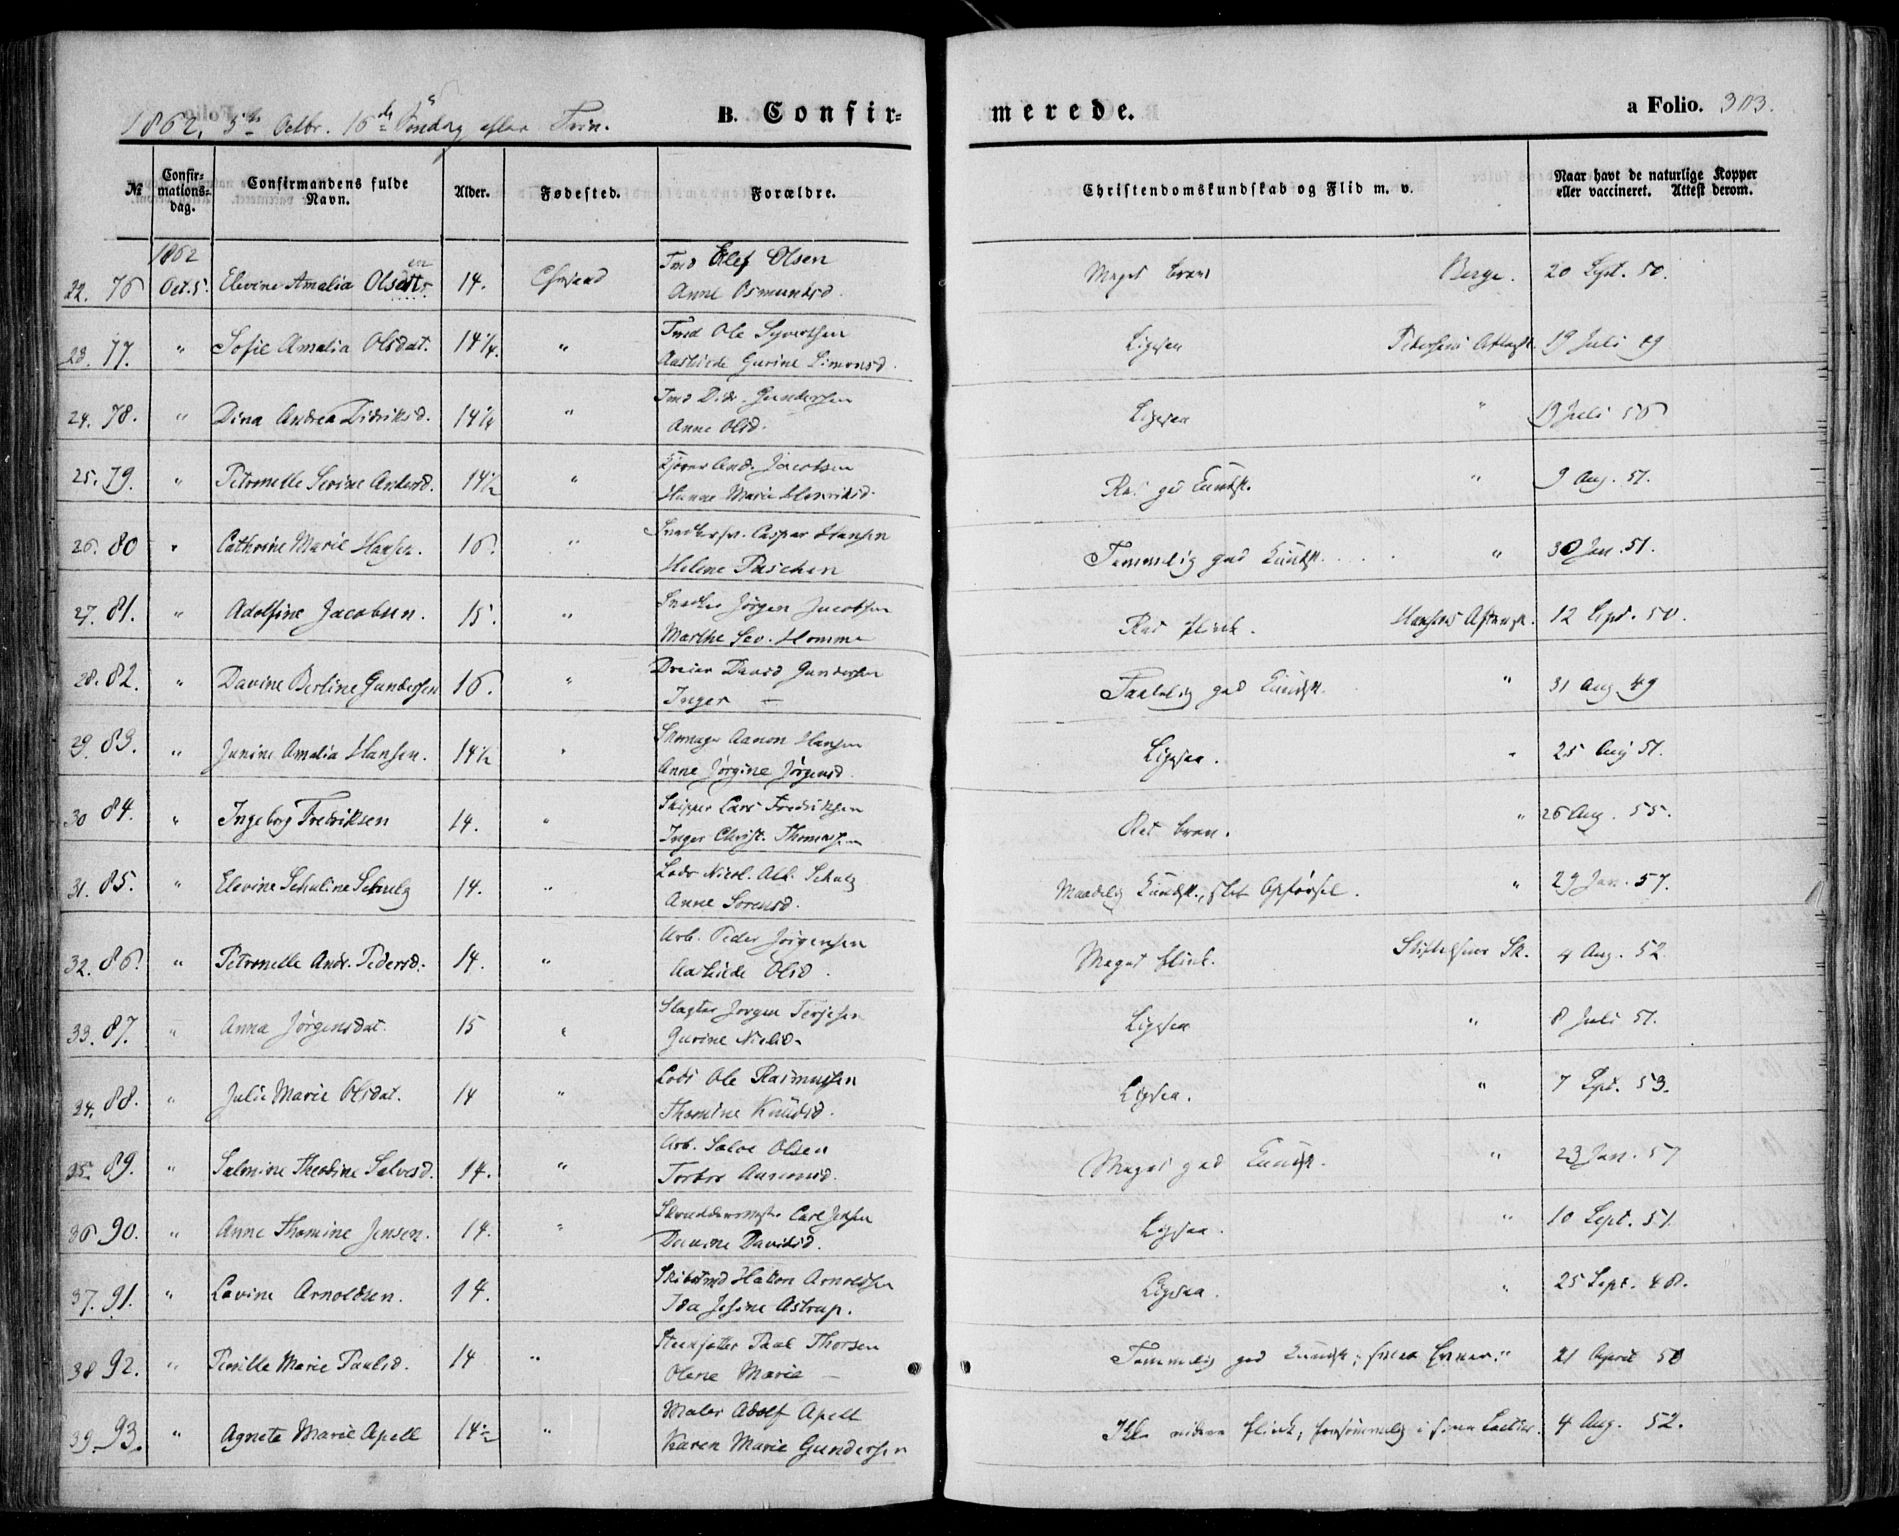 1862, 5te Octbr. 16de Søndag efter Trin.
B. Confir=
merede.
a Folio. 303.
No
Confir-mations-dag.
Confirmandens fulde Navn.
Alder.
Fødested.
Forældre.
Christendomskundskab og Flid m. v.
Naar havt de naturlige Kopper eller vaccineret. Attest derom.
1862
22. 76 Oct. 5. Elevine Amalia Olsdtr. 14. Chrsand Olef Olsen Meget brav Berge. 20 Sept. 50.
Anne Osmundsd.
23. 77. " Sofie Amalia Olsdat. 14 1/4. " Tmd Ole Syvertsen Ligesaa 19 Juli 49
Aashilde Gurine Simonsd.
24. 78. " Dina Andrea Didriksd. 14 1/4 " Tmd Didr. Gundersen Ligesaa " 19 Juli 56
Anne Olsd.
25. 79. " Petronelle Severine Andersd. 14 1/2 " And. Jacobsen Ret god Kundsk. " 9 Aug. 51.
Hanne Marie Henriksd.
26. 80 " Cathrine Marie Hansen. 16. " Caspar Hansen Temmelig god Kundsk. " 30 Jan. 51.
Helene Paschen
27. 81. " Adolfine Jacobsen. 15. " Snedker Jørgen Jacobsen Ret flink. 12 Sept. 50.
Marthe Sev. Homme
28. 82. " Davine Berline Gundersen 16. " Dreier David Gundersen Taalelig god Kundsk. " 31 Aug 49
Inger —
29 83. " Janine Amalia Hansen. 14 1/2 " Skomager Aanon Hansen Ligesaa. " 25 Aug 51.
Anne Jørgine Jørgensd.
30 84. " Ingeborg Fredriksen 14. " Skipper Lars Fredriksen Ret brav. " 26 Aug. 55.
Inger Christ. Thomassen
31. 85. " Elevine Schuline Schulz 14. " Lods Nicol. Alb. Schulz Maadelig Kundsk., slet Opførsel. " 29 Jan. 57.
Anne Sørensd.
32. 86. " Petronelle Andr. Pedersd. 14. " Arb. Peder Jørgensen Meget flink. Stiftelsens Sk. 4 Aug. 52.
Aashilde Olsd.
33. 87. " Anna Jørgensdat. 15 " Slagter Jørgen Terjesen Ligesaa " 8 Juli 51.
Gurine Nielsd.
34. 88. " Julie Marie Olsdat. 14 " Lods Ole Rasmussen Ligesaa. " 7 Sept. 53.
Thomine Knudsd.
35 89. " Salmine Theodine Salvesd. 14. " Arb. Salve Olsen Meget god Kundsk. " 23 Jan. 57
Torbor Aanensd.
36 90. " Anne Thomine Jensen. 14. " Carl Jensen Ligesaa. " 10 Sept. 51.
Davine Davidsd.
37. 91. " Lovine Arnoldsen. 14. Skibstmd Hakon Arnoldsen Ligesaa. " 25 Sept. 48.
Ida Josine Astrup.
38 92. " Pernille Marie Paulsd. 14 " Paal Thorsen Temmelig god Kundsk; 21 April 50
Olene Marie —
39 93. " Agnete Marie Apell 14 1/2 " Maler Adolf Apell Ikke videre flink, forsømmelig i 4 Aug. 52.
Karen Marie Gundersen